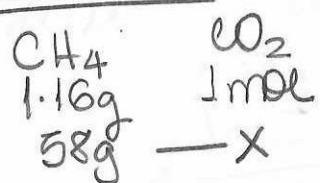 CH4 CO2
1.16g 1mol
58g — X